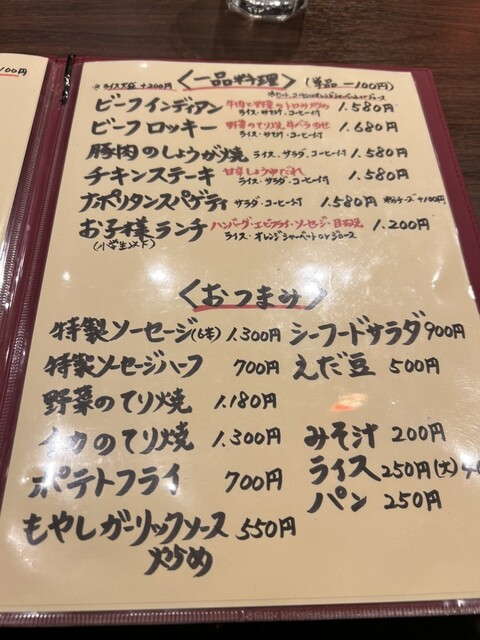 100円
ライス大盛 +200円 〈一品料理〉 (単品 -100円)
ビーフインディアン 牛肉と野菜のトロミ炒め 1.580円
ライス・サラダ・コーヒー付
ビーフロッキー 野菜のてり焼 牛バラのせ 1.680円
ライス・サラダ・コーヒー付
豚肉のしょうが焼 ライス・サラダ・コーヒー付 1.580円
チキンステーキ 甘辛しょうゆだれ 1.580円
ライス・サラダ・コーヒー付
ナポリタンスパゲティ サラダ・コーヒー付 1.580円 粉チーズ+100円
お子様ランチ ハンバーグ・エビフライ・ソーセージ・目玉焼 1.200円
(小学生以下) ライス・オレンジシャーベットorジュース
〈おつまみ〉
特製ソーセージ(6本) 1.300円 シーフードサラダ 900円
特製ソーセージハーフ 700円 えだ豆 500円
野菜のてり焼 1.180円
イカのてり焼 1.300円 みそ汁 200円
ポテトフライ 700円 ライス 250円(大)
パン 250円
もやしガーリックソース 550円
炒め